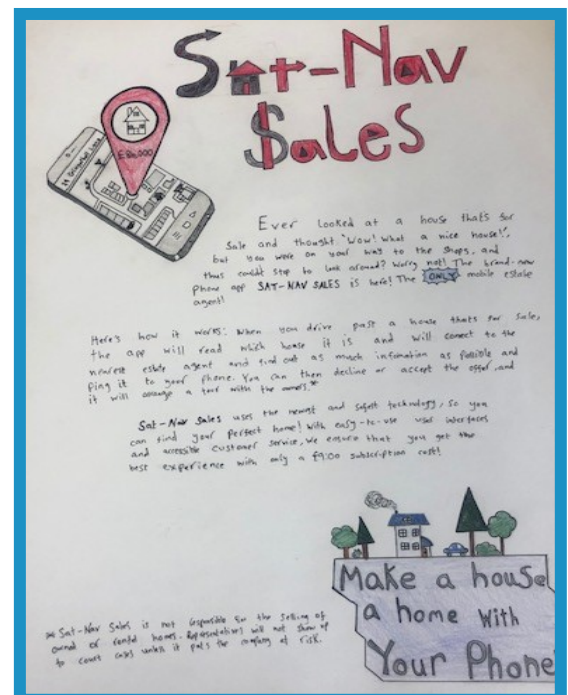 Sat-Nav
Sales
£80,000
Ever looked at a house thats for
sale and thought "Wow! What a nice house!",
but you were on your way to the shops, and
thus couldn't stop to look around? Worry not! The brand-new
phone app SAT-NAV SALES is here! The ONLY mobile estate
agent!
Here's how it works: When you drive past a house thats for sale,
the app will read which house it is and will conect to the
nearest estate agent and find out as much infomation as possible and
ping it to your phone. You can then decline or accept the offer, and
it will arrange a tour with the owners.*
Sat-Nav Sales uses the newest and safest technology, so you
can find your perfect home! With easy-to-use user interfaces
and accessible customer service, we ensure that you get the
best experience with only a £9.00 subscription cost!
Make a house
a home With
Your Phone
* Sat-Nav Sales is not responsible for the selling of
owned or rental homes. Representatives will not show up
to court cases unless it puts the company at risk.